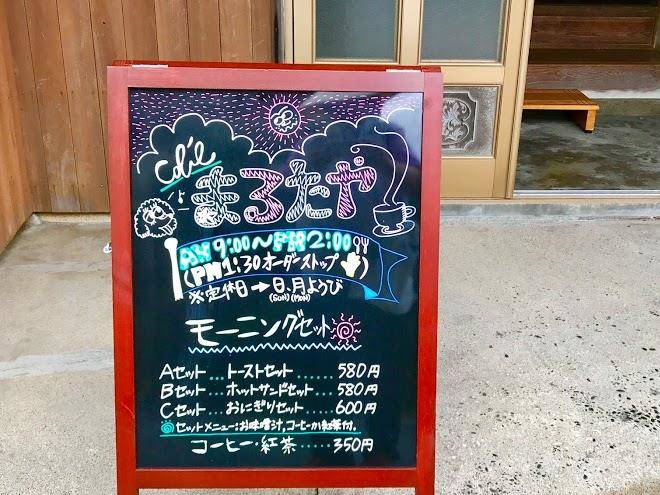 Café
まるたや
AM 9:00〜PM 2:00
(PM1:30オーダーストップ)
※定休日→日、月ようび
(SUN) (MON)
モーニングセット
Aセット...トーストセット......580円
Bセット...ホットサンドセット...580円
Cセット...おにぎりセット......600円
セットメニュー:お味噌汁,コーヒーか紅茶付。
コーヒー・紅茶.....350円